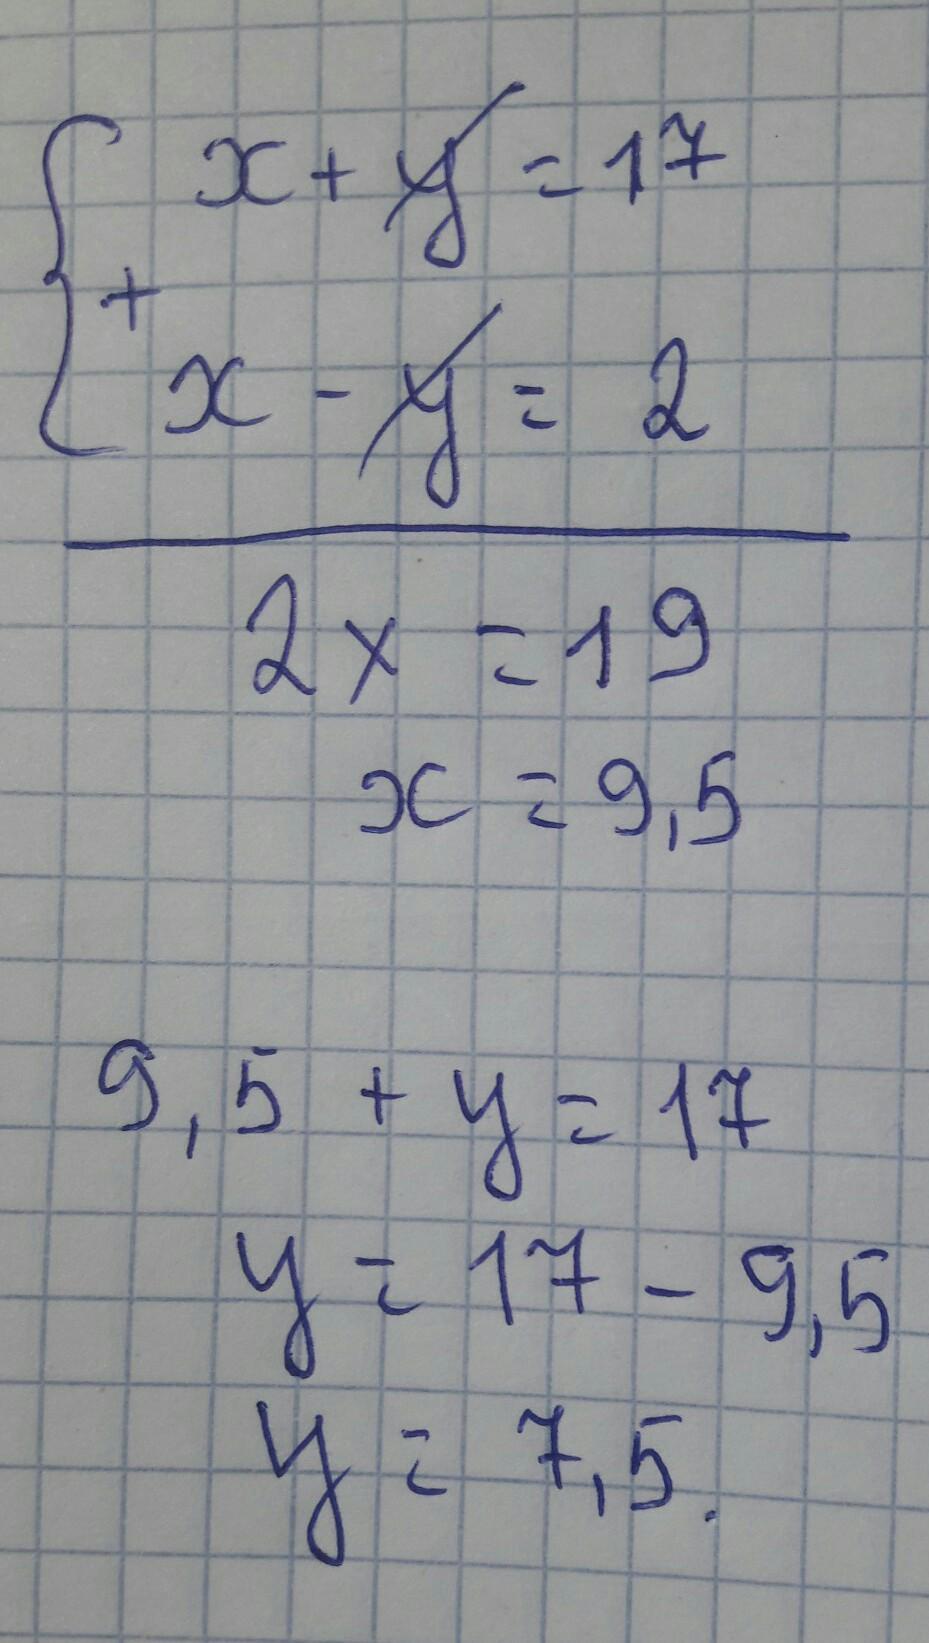 x + y = 17
+
x - y = 2
2x = 19
x = 9,5
9,5 + y = 17
y = 17 - 9,5
y = 7,5.